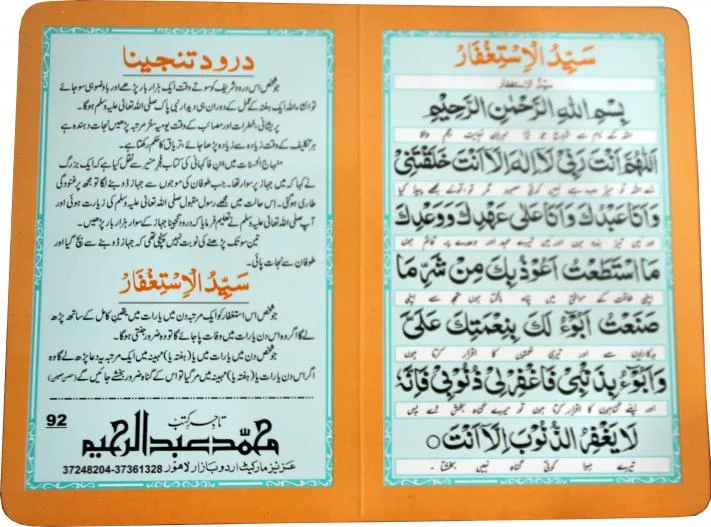 سَیِّدُ الْاِسْتِغْفَارُ
سیّدُ الاِستِغفار
بِسْمِ اللهِ الرَّحْمٰنِ الرَّحِيْمِ
اللہ کے نام سے شروع جو بڑا مہربان نہایت رحم والا
اَللّٰهُمَّ اَنْتَ رَبِّيْ لَاۤ اِلٰهَ اِلَّاۤ اَنْتَ خَلَقْتَنِيْ
اے اللہ تو میرا رب ہے نہیں کوئی معبود مگر تو، تونے مجھے پیدا کیا
وَاَنَا عَبْدُكَ وَاَنَا عَلٰى عَهْدِكَ وَوَعْدِكَ
اور میں تیرا بندہ ہوں اور میں تیرے عہد اور وعدے پر قائم ہوں
مَا اسْتَطَعْتُ اَعُوْذُ بِكَ مِنْ شَرِّ مَا
اپنی طاقت کے موافق میں پناہ مانگتا ہوں تجھ سے اپنی
صَنَعْتُ اَبُوْءُ لَكَ بِنِعْمَتِكَ عَلَيَّ
بدکاریوں سے اور تیری نعمتوں کا اقرار کرتا ہوں
وَاَبُوْءُ بِذَنْۢبِيْ فَاغْفِرْ لِيْ ذُنُوْبِيْ فَاِنَّهٗ
اور اپنے گناہوں کا اقرار کرتا ہوں تو میرے گناہ بخش دے پس
لَا يَغْفِرُ الذُّنُوْبَ اِلَّاۤ اَنْتَ ○
تیرے سوا کوئی گناہ نہیں بخشتا۔
درود تنجینا
جو شخص اس درود شریف کو سوتے وقت ایک ہزار بار پڑھے اور باوضو ہی سو جائے
تو انشاء اللہ ایک ہفتہ کے عمل کے دوران ہی دیدار نبی پاک صلی اللہ تعالیٰ علیہ وسلم ہوگا۔
پریشانی، خطرات اور مصائب کے وقت یومیہ ستر مرتبہ پڑھیں نجات دہندہ ہے
ہر تکلیف کے وقت زیادہ سے زیادہ پڑھا جائے، تریاق کا حکم رکھتا ہے۔
منہاج الحسنات میں ابن فاکہانی کی کتاب فجر منیر سے نقل کیا ہے کہ ایک بزرگ
نے کہا کہ میں جہاز پر سوار تھا۔ جب طوفان کی موجوں سے جہاز ڈوبنے لگا تو مجھ پر غنودگی
طاری ہوگئی۔ اس حالت میں مجھے رسول مقبول صلی اللہ تعالیٰ علیہ وسلم کی زیارت ہوئی اور
آپ صلی اللہ تعالیٰ علیہ وسلم نے تعلیم فرمایا کہ درود تنجینا جہاز کے سوار ہزار بار پڑھیں۔
تین سو تک پڑھنے کی نوبت نہیں پہنچی تھی کہ جہاز ڈوبنے سے بچ گیا اور
طوفان سے نجات پائی۔
سَیِّدُ الْاِسْتِغْفَارُ
جو شخص اس استغفار کو ایک مرتبہ دن میں یا رات میں یقین کامل کے ساتھ پڑھ
لے گا اگر وہ اس دن یا رات میں وفات پا جائے گا تو وہ ضرور جنتی ہوگا۔
جو شخص دن میں یا رات میں (یا) ہفتہ یا (مہینہ میں) ایک مرتبہ یہ دعا پڑھ لے گا وہ
اگر اس دن یا رات یا (ہفتہ یا) مہینہ میں مر گیا تو اس کے گناہ ضرور بخشے جائیں گے (حصن حصین)
92
تاجر کتب
محمد عبد الرحیم
عزیز مارکیٹ اردو بازار لاہور 37361328-37248204